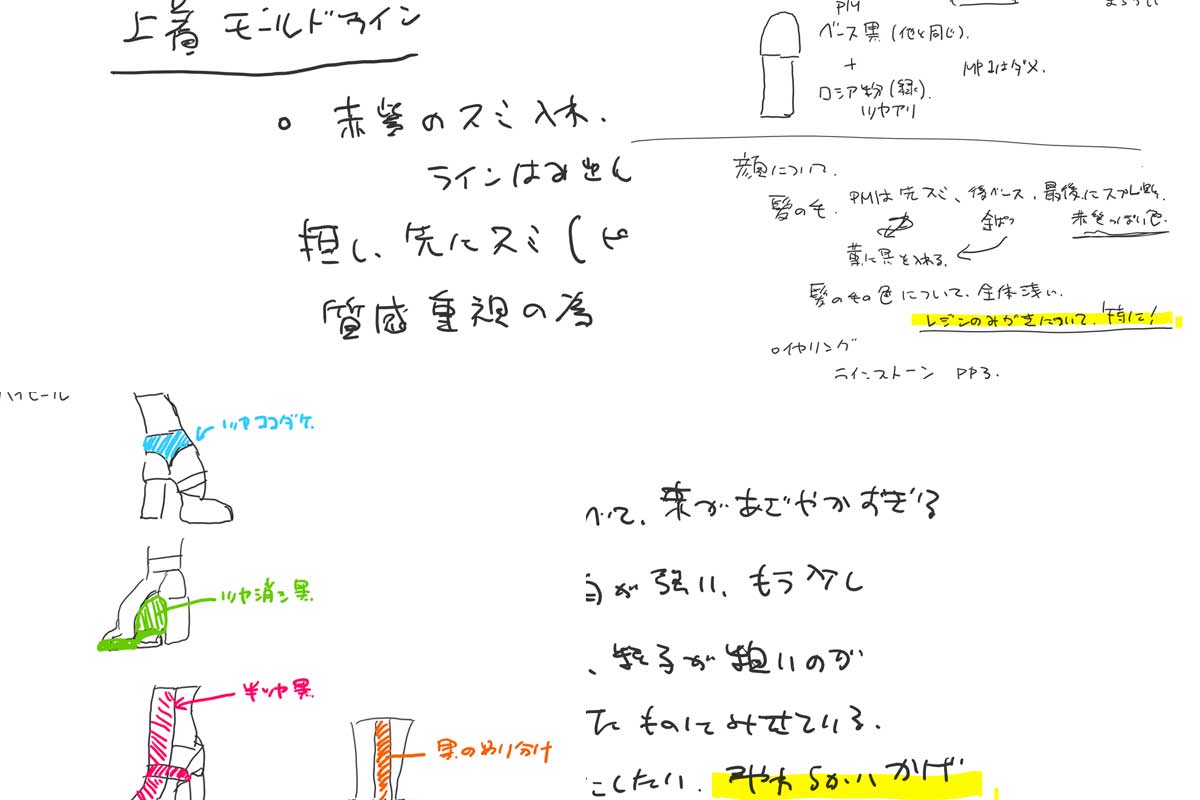 上着 モールドライン
○ 赤紫のスミ入れ.
ラインはみせん
担し、先にスミ(ピ
質感重視の為
PM
ベース黒(他と同じ).
+
MP1はダメ.
ロシア粉(緑).
ツヤアリ
顔について.
髪の毛. PMは先スミ、後ベース、最後にスプレー
赤紫っぽい色.
黄に黒を入れる.
髪の毛の色について. 全体浅い.
レジンのみがきについて. 特に!
○イヤリング
ラインストーン PP3.
ハイヒール
ツヤココダケ.
ツヤ消し黒
半ツヤ黒
黒のぬり分け
べて、赤があざやかすぎる
が強い、もう少し
、粒子が粗いのが
たものにみせている.
にしたい. やわらかいかげ